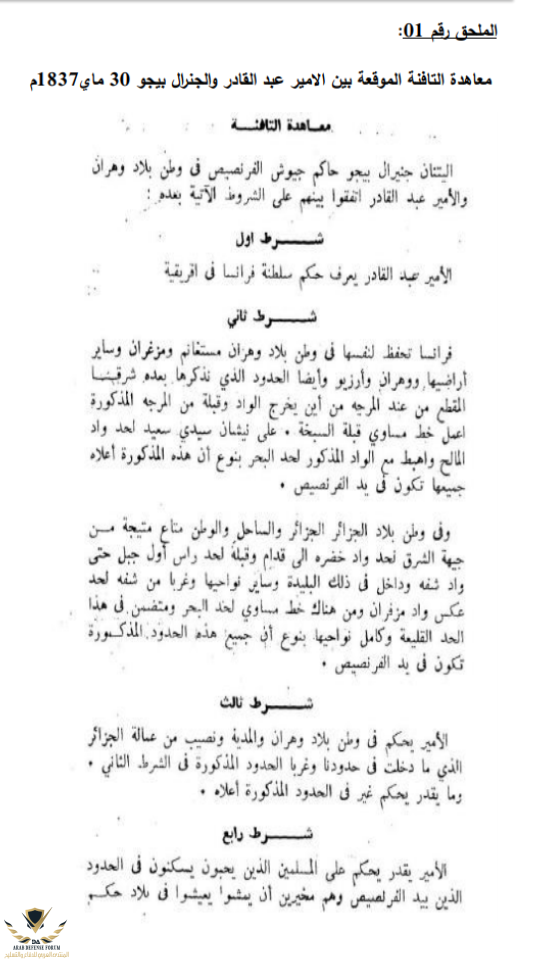 الملحق رقم 01:
معاهدة التافنة الموقعة بين الامير عبد القادر والجنرال بيجو 30 ماي1837م
معاهدة التافنة
اليتنان جنيرال بيجو حاكم جيوش الفرنصيص فى وطن بلاد وهران
والأمير عبد القادر اتفقوا بينهم على الشروط الآتية بعده :
شرط اول
الأمير عبد القادر يعرف حكم سلطنة فرانسا فى افريقية
شرط ثاني
فرانسا تحفظ لنفسها فى وطن بلاد وهران مستغانم ومزغران وساير
أراضيها ووهران وأرزيو وأيضا الحدود الذي نذكرها بعده شرقينا
المقطع من عند المرجه من أين يخرج الواد وقبلة من المرجه المذكورة
اعمل خط مساوي قبلة السبخة • على نيشان سيدي سعيد لحد واد
المالح واهبط مع الواد المذكور لحد البحر بنوع أن هذه المذكورة أعلاه
جميعها تكون فى يد الفرنصيص •
وفى وطن بلاد الجزائر الجزائر والساحل والوطن متاع متيجة من
جيهة الشرق لحد واد خضره الى قدام وقبلة لحد راس أول جبل حتى
واد شفه وداخل فى ذلك البليدة وساير نواحيها وغربا من شفه لحد
عكس واد مزفران ومن هناك خط مساوي لحد البحر ومتضمن فى هذا
الحد القليعة وكامل نواحيها بنوع أن جميع هذه الحدود المذكورة
تكون فى يد الفرنصيص •
شرط ثالث
الأمير يحكم فى وطن بلاد وهران والمدية ونصيب من عمالة الجزائر
الذي ما دخلت فى حدودنا وغربا الحدود المذكورة فى الشرط الثاني •
وما يقدر يحكم غير فى الحدود المذكورة أعلاه •
شرط رابع
الأمير يقدر يحكم على المسلمين الذين يحبون يسكنون فى الحدود
الذين بيد الفرنصيص وهم مخيرين أن يمشوا يعيشوا فى بلاد حكم
DA
ARAB DEFENSE FORUM
المنتدى العربي للدفاع والتسليح